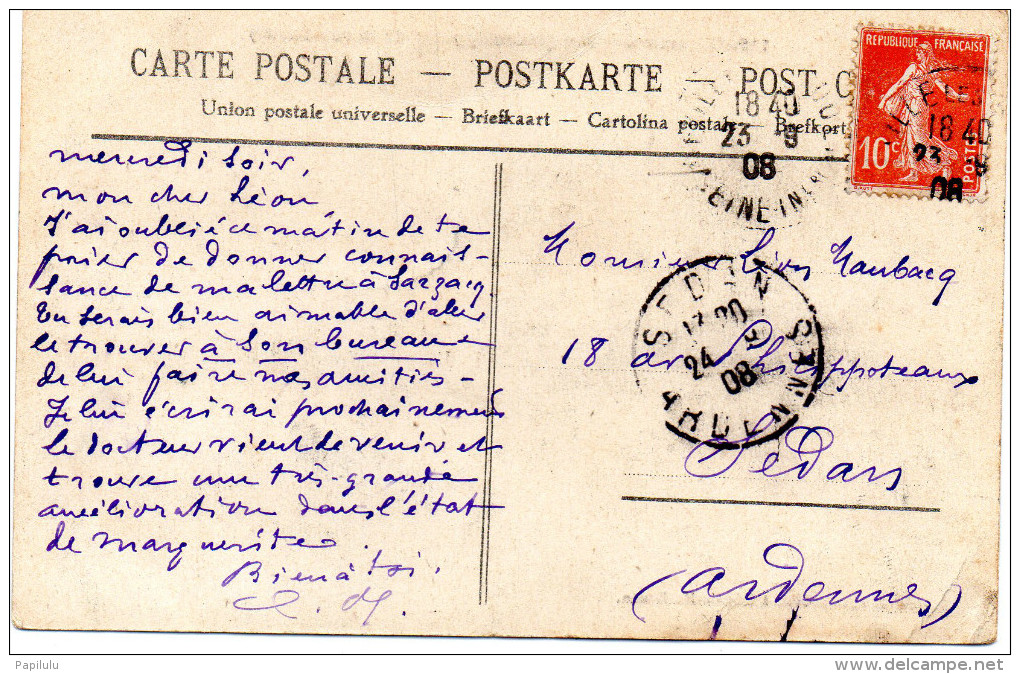 CARTE POSTALE — POSTKARTE — POST C
Union postale universelle — Briefkaart — Cartolina postale — Brefkort
REPUBLIQUE FRANÇAISE
10c
POSTES
18 40
23 9
08
SEINE IN
18 40
23 9
08
mercredi soir,
mon cher Léon,
J'ai oublié ce matin de te
prier de donner connais-
sance de ma lettre à Sarzacq.
Tu serais bien aimable d'aller
le trouver à son bureau
de lui faire nos amitiés —
Je lui écrirai prochainement
le docteur vient de venir et
trouve une très-grande
amélioration dans l'état
de marguerite.
Bien à toi.
Monsieur Léon Naubacq
18 av. Philippoteaux
Sedan
(Ardennes)
SEDAN
24 9
08
ARDENNES
Papilulu
http://www.delcampe.net